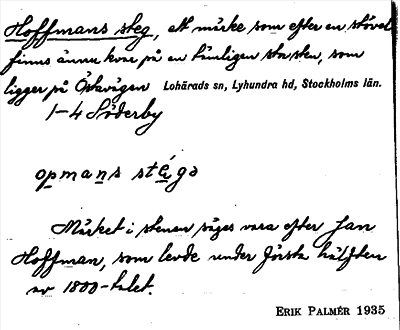 Hoffmans steg, ett märke som efter en stövel
finns ännu kvar på en tämligen stor sten, som
ligger på Östavägen Lohärads sn, Lyhundra hd, Stockholms län.
1-4 Söderby
opmans stéga
Märket i stenen säges vara efter Jan
Hoffman, som levde under första hälften
av 1800-talet.
ERIK PALMÉR 1935